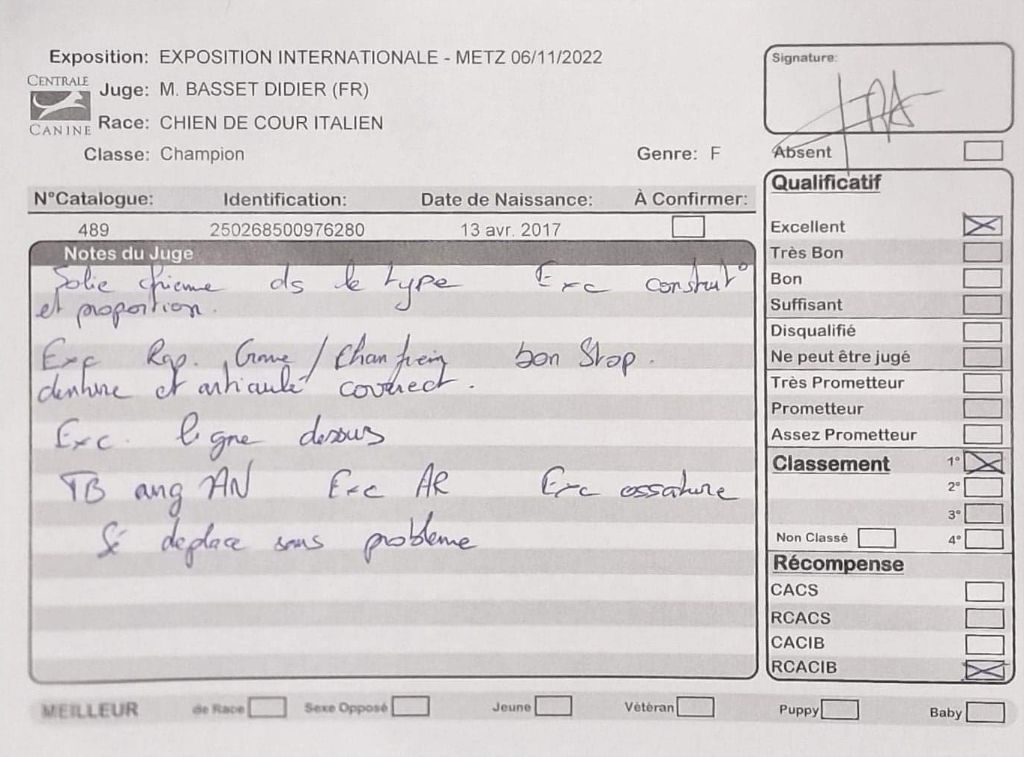 Exposition: EXPOSITION INTERNATIONALE - METZ 06/11/2022
CENTRALE CANINE
Juge: M. BASSET DIDIER (FR)
Race: CHIEN DE COUR ITALIEN
Classe: Champion
Genre: F
Signature:
Absent
N°Catalogue: Identification: Date de Naissance: À Confirmer:
489 250268500976280 13 avr. 2017
Notes du Juge
Jolie chienne ds le type Exc construct°
et proportion.
Exc Rap. Crane / Chanfrein bon Stop.
denture et articulé correct.
Exc. ligne dessus
TB ang AN Exc AR Exc ossature
Se deplace sans probleme
Qualificatif
Excellent
Très Bon
Bon
Suffisant
Disqualifié
Ne peut être jugé
Très Prometteur
Prometteur
Assez Prometteur
Classement 1°
2°
3°
Non Classé 4°
Récompense
CACS
RCACS
CACIB
RCACIB
MEILLEUR de Race Sexe Opposé Jeune Vétéran Puppy Baby